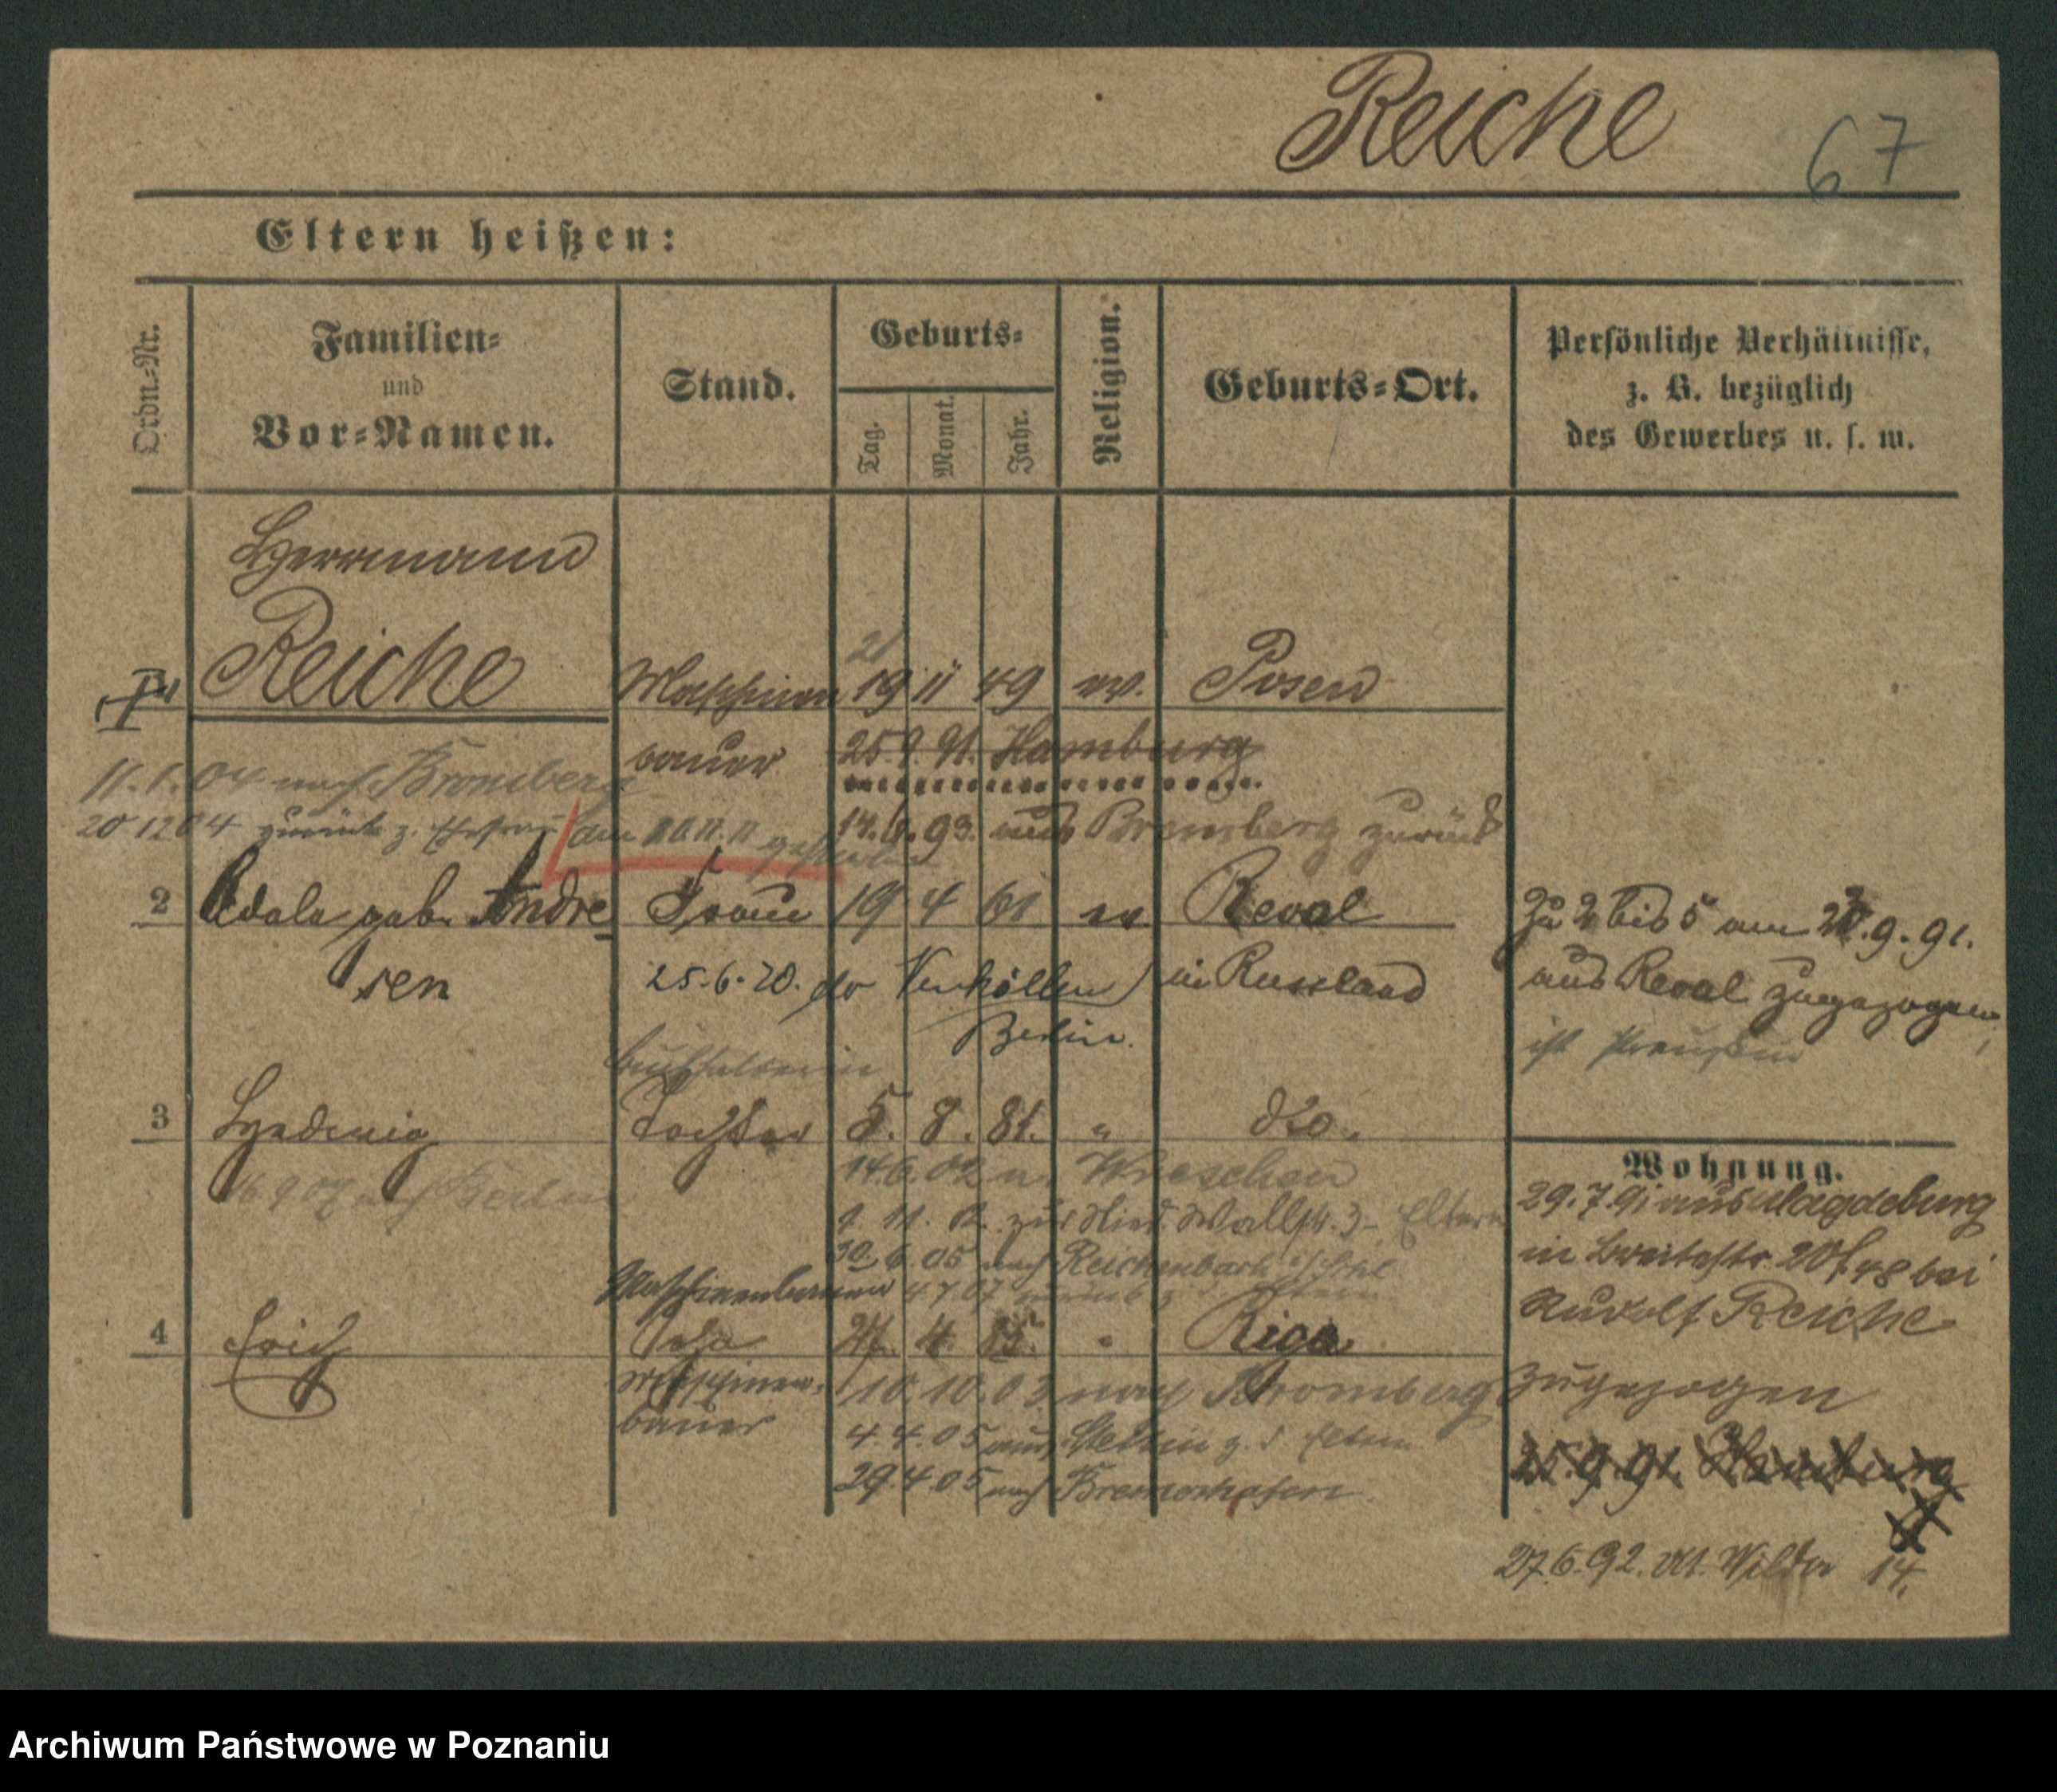 Reiche
67
Eltern heißen:
Ordn.-Nr.
Familien-
und
Vor-Namen.
Stand.
Geburts-
Tag.
Monat.
Jahr.
Religion.
Geburts-Ort.
Persönliche Verhältnisse,
z. B. bezüglich
des Gewerbes u. s. w.
Herrmann
Reiche Maschinen 19 11 49 ev. Posen
21
bauer 25.9.91. Hamburg
11.1.04 nach Bromberg
20 12 04 zurück z. Ehefrau am gestorben
14. 93. aus Bromberg zurück
2 Adele geb. Andre Frau 19 4 61 ev. Reval
sen 25.6.20. in Russland
Berlin.
Zu 2 bis 5 am 9.91.
aus Reval zugezogen,
ist Preußin
Buchhalterin
3 Hedwig Tochter 5. 8. 81. " dto.
14.6.02 n. Wreschen
16.9.07 nach Berlin
zur Wallstr. 3 Eltern
30. 6. 05 nach Reichenbach
Maschinenbauer 4 7 07 zurück z. Eltern
4 Erich 4. 85. " Riga
Maschinen- 10.10.03 nach Bromberg
bauer
4.4.05 aus Stettin z. d. Eltern
29.4.05 nach Bremerhafen
Wohnung.
29.7.91 aus Magdeburg
in Breitestr. 20 bei
Rudolf Reiche
zugezogen
25.9.91. Hamburg
27.6.92. Wilda 14.
Archiwum Państwowe w Poznaniu